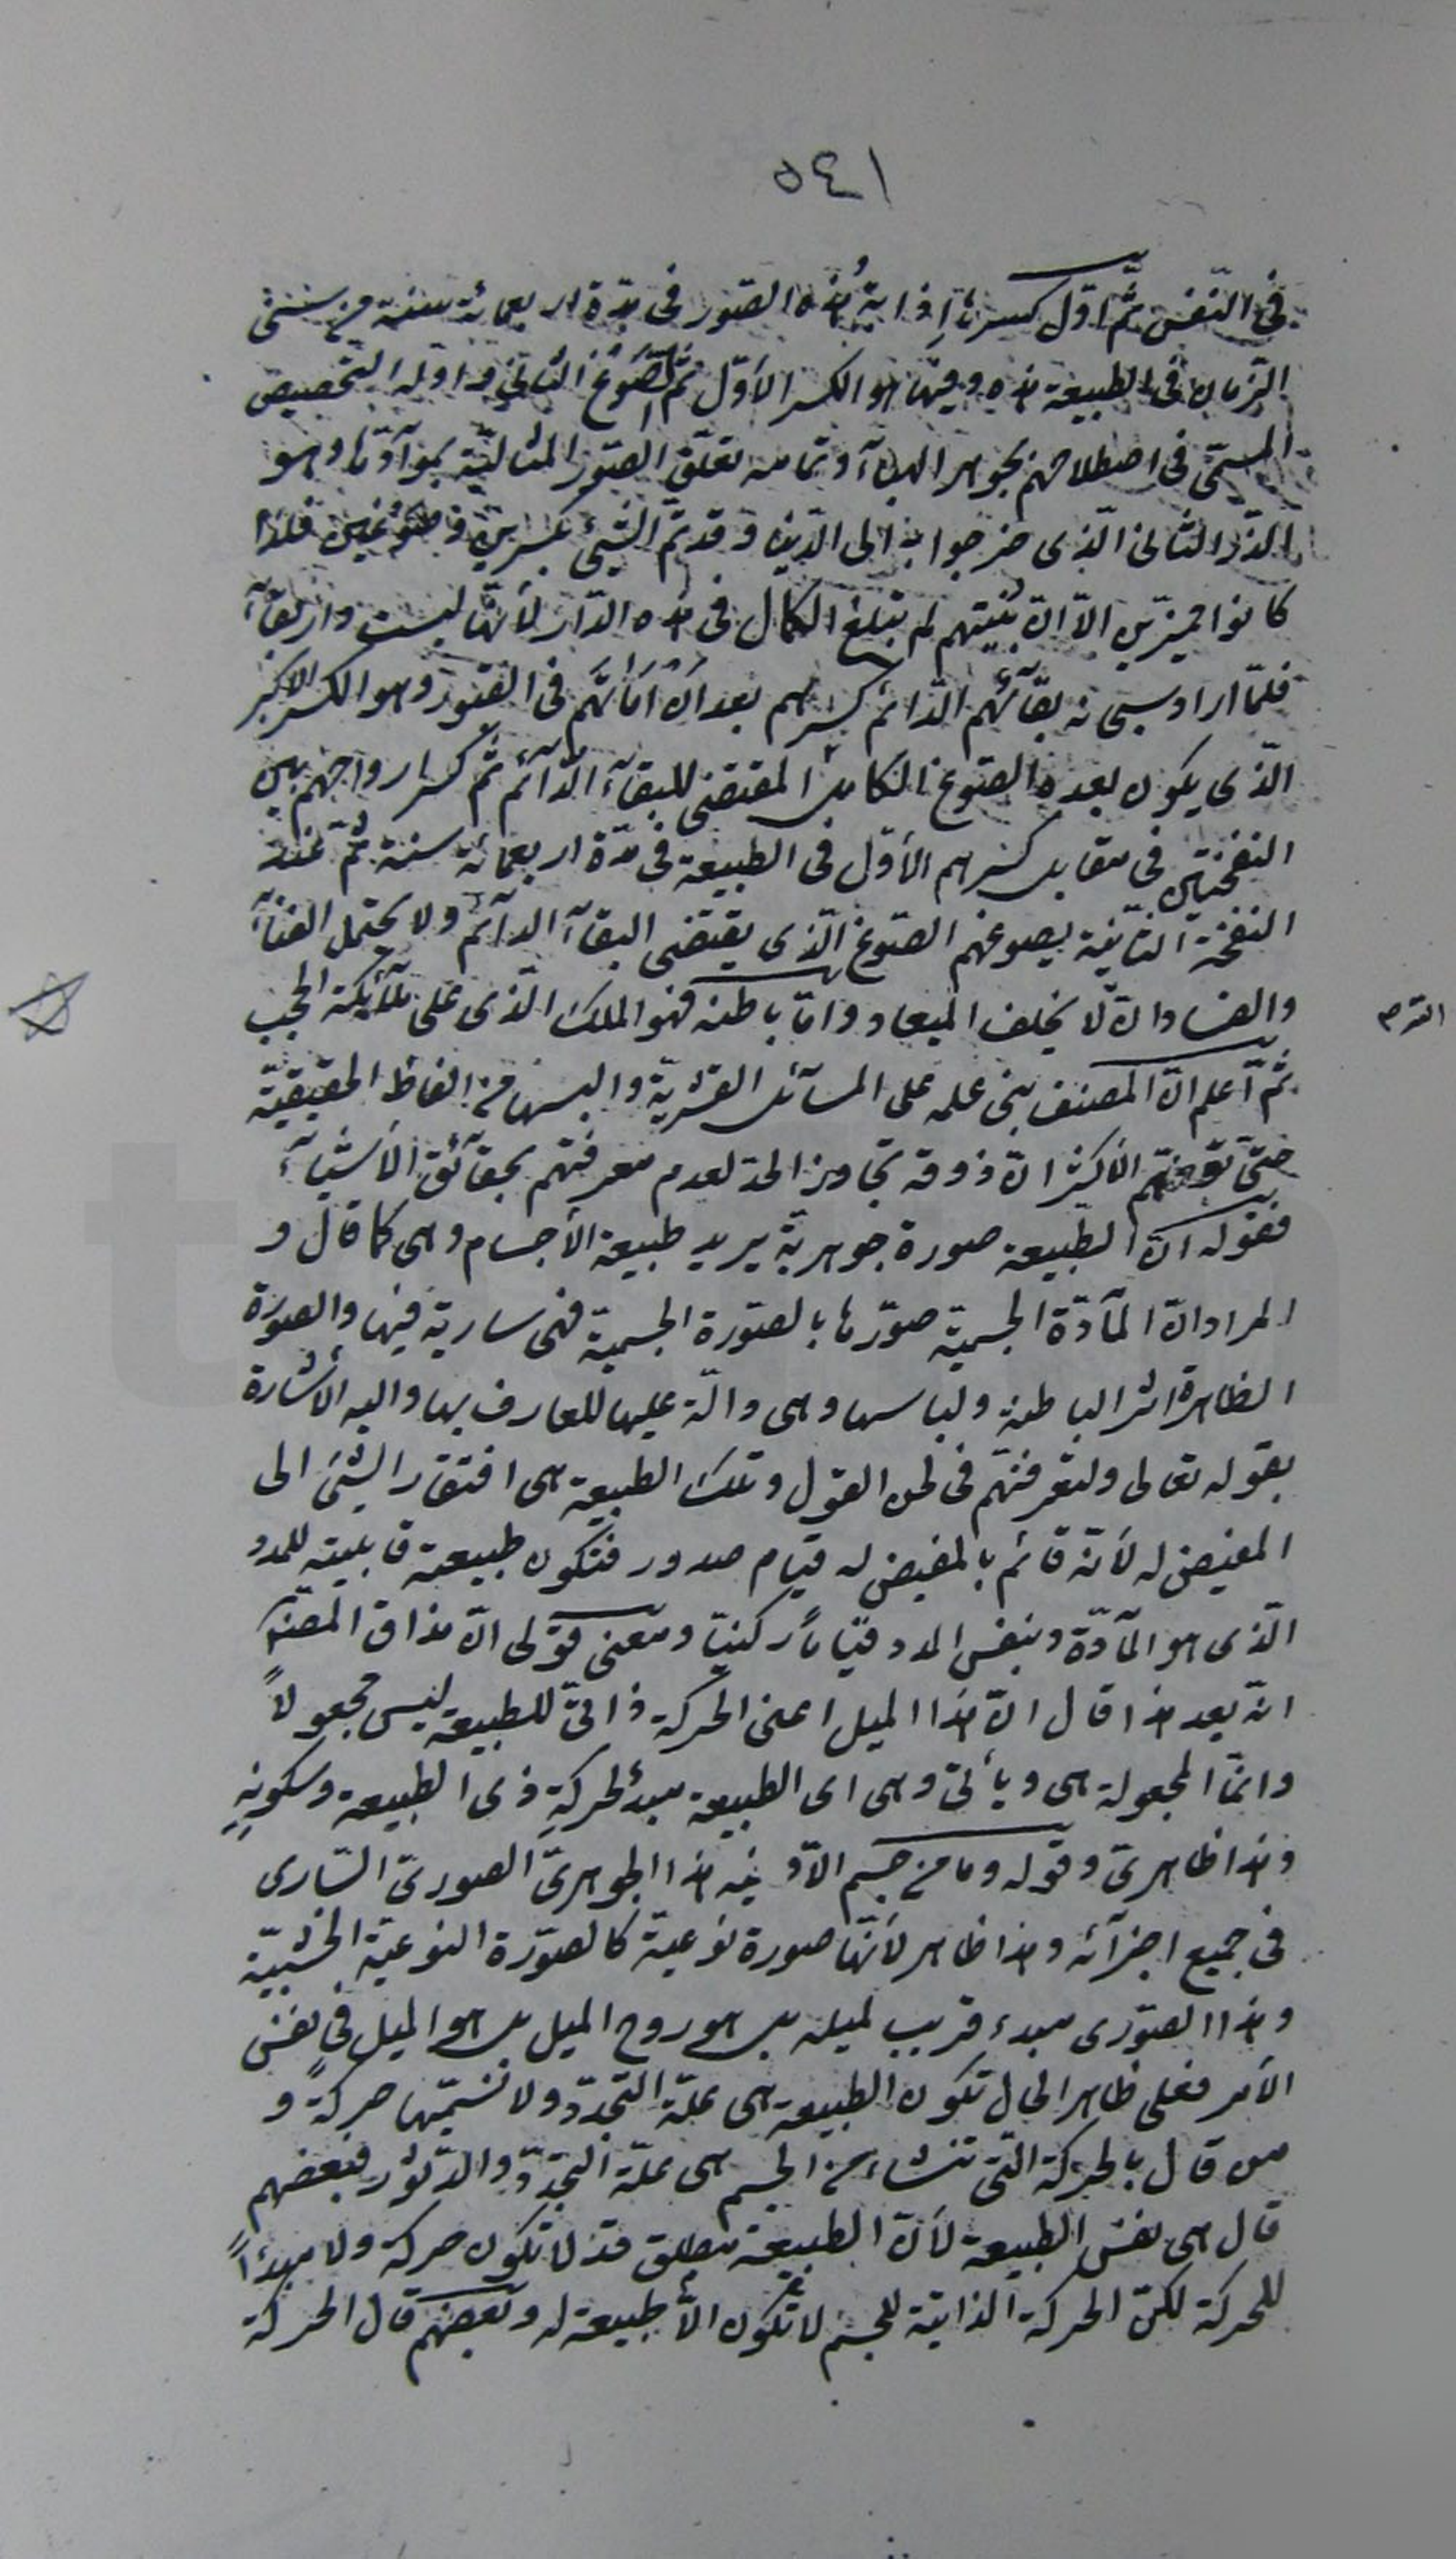 ٥٤١
فى النّفس ثمّ اوّل كسرها اذابة هذه الصّور فى مدّة اربعمائة سنة من سنى
الزمان فى الطبيعة هذه وفيها هو الكسر الأوّل ثمّ الصّوغ الثانى واوله التخصيص
المسمّى فى اصطلاحهم بجوهر الهبآء وتمامه تعلّق الصّور المثاليّة بموآدّها وهو
الذّر الثانى الّذى خرجوا به الى الدّنيا وقد تمّ الشّىء بكسرين وصوغين فلذا
كانوا مميزين الاّ انّ بنيتهم لم تبلغ الكمال فى هذه الدّار لأنّها ليست دار بقآء
فلمّا اراد سبحانه بقآئهم الدّائم كسرهم بعد ان اماتهم فى القبور وهو الكسر الاكبر
الّذى يكون بعده الصّوغ الكامل المقتضى للبقآء الدّآئم ثمّ كسر ارواحهم بين
النفختين فى مقابل كسرهم الأوّل فى الطبيعة فى مدّة اربعمائة سنة ثمّ عند
النفخة الثانية يصوغهم الصّوغ الّذى يقتضى البقآء الدآئم ولا يحتمل الفنآء
والفساد انّ لا يخلف الميعاد وامّا باطنه فهو الملك الّذى على ملآئكة الحجب
ثمّ اعلم انّ المصنف بنى علمه على المسآئل القشريّة والبسها من الفاظ الحقيقيّة
حتّى توهّم الأكثر انّ ذوقه تجاوز الحدّ لعدم معرفتهم بحقآئق الأشيآء
فقوله انّ الطّبيعة صورة جوهريّة يريد طبيعة الأجسام وهى كما قال و
المراد انّ المآدّة الجسميّة صوّرها بالصّورة الجسميّة فهى سارية فيها والصورة
الظاهرة اثر الباطنة ولباسها وهى دالّة عليها للعارف بها واليه الأشارة
بقوله تعالى ولتعرفنّهم فى لحن القول وتلك الطبيعة هى افتقار الشّىء الى
المفيض له لأنّه قائم بالمفيض له قيام صدور فتكون طبيعته قابليته للمدد
الّذى هو المآدّة وبنفس المدد قياماً ركنيّا ومعنى قولى انّ مذاق المصنّف
انّه بعد هذا قال انّ هذا الميل اعنى الحركة ذاتىّ للطبيعة ليس مجعولاً
وانّما المجعولة هى ويأتى وهى اى الطبيعة مبدأ لحركةِ ذى الطبيعة وسكونِهِ
وهذا ظاهرىّ وقوله وما من جسم الاّ وفيه هذا الجوهرىّ الصورىّ السّارى
فى جميع اجزآئه وهذا ظاهر لأنّها صورة نوعيّة كالصّورة النوعيّة الخشبيّة
وهذا الصّورى مبدء قريب لميله بل هو روح الميل بل هو الميل فى نفس
الأمر فعلى ظاهر الحال تكون الطبيعة هى علّة التجدّد ولا نسمّيها حركة و
من قال بالحركة التى تنشاء من الجسم هى علّة التجدّد والدّثور فبعضهم
قال هى نفس الطبيعة لأنّ الطبيعة مطلق قد لا تكون حركة ولا مبدءاً
للحركة لكنّ الحركة الذاتيّة للجسم لا تكون الاّ طبيعة له وبعضهم قال الحركة